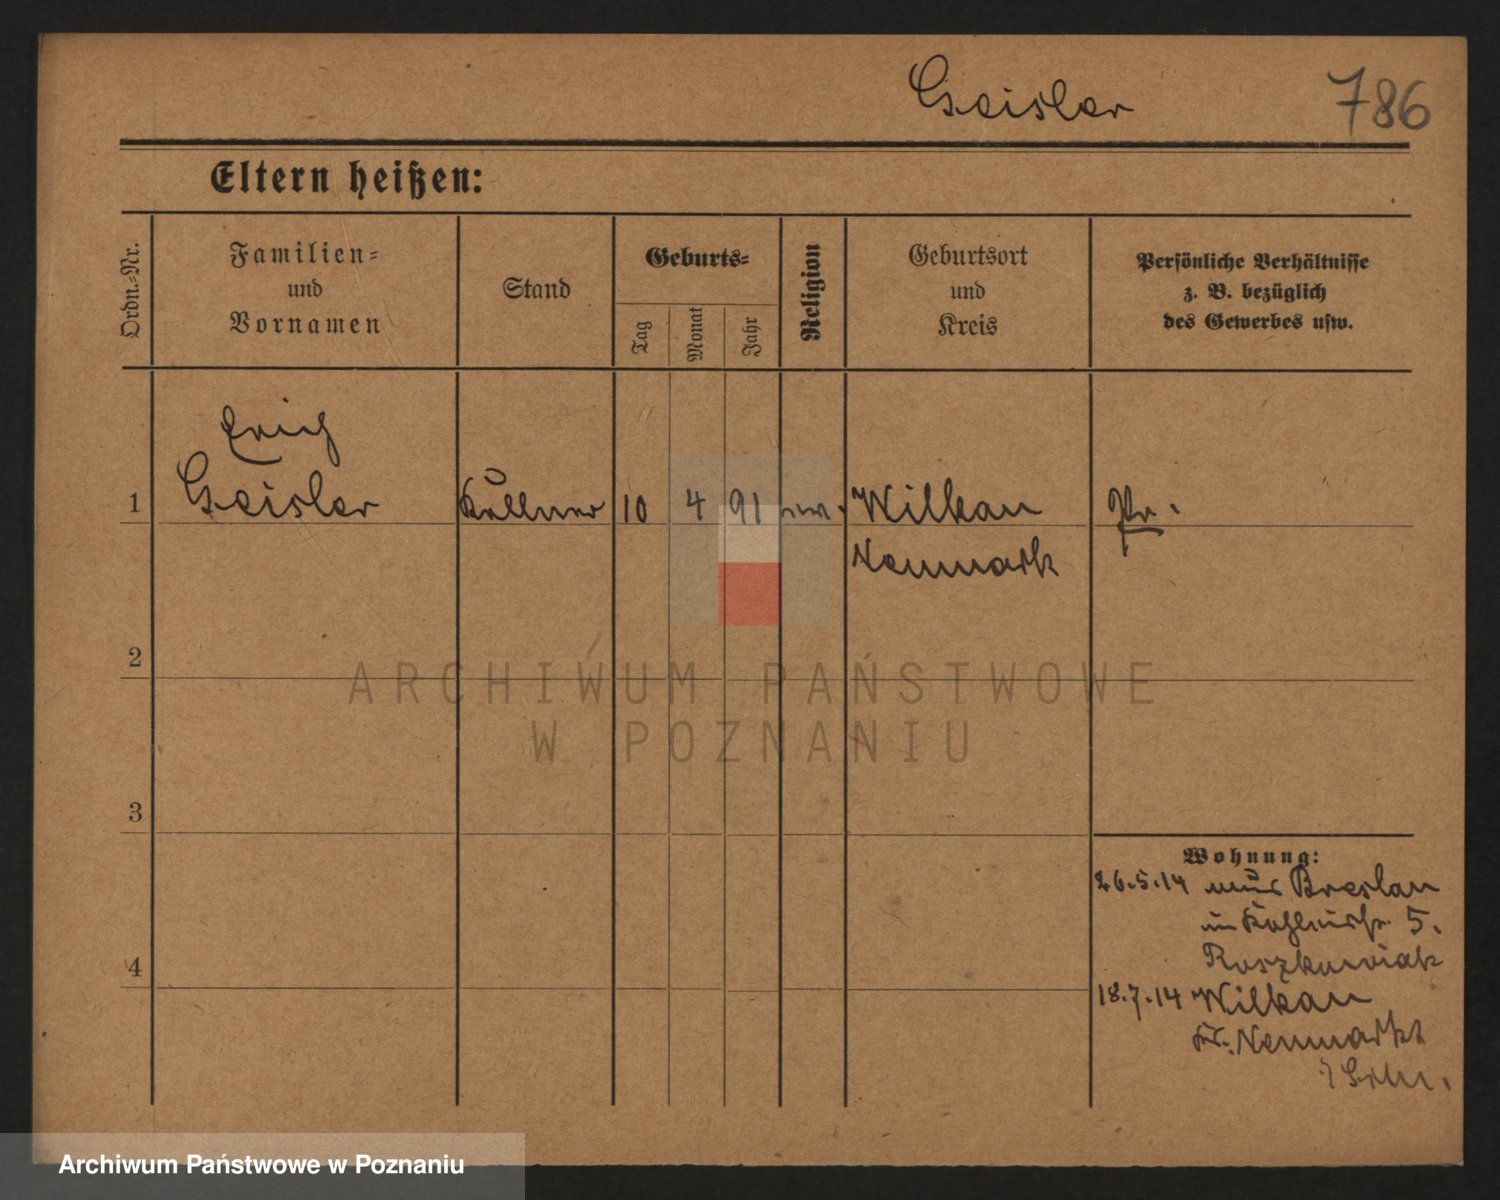 Geisler 786
Eltern heißen:
Ordn.-Nr.
Familien-
und
Vornamen
Stand
Geburts-
Tag
Monat
Jahr
Religion
Geburtsort
und
Kreis
Persönliche Verhältnisse
z. B. bezüglich
des Gewerbes usw.
Erich
1 Geisler Kellner 10 4 91 Wilkau Pr.
Neumark
2
ARCHIWUM PAŃSTWOWE
W POZNANIU
3
Wohnung:
26.5.14 Breslau
5.
Roszkowiak
4
18.7.14 Wilkau
Kr. Neumarkt
Archiwum Państwowe w Poznaniu